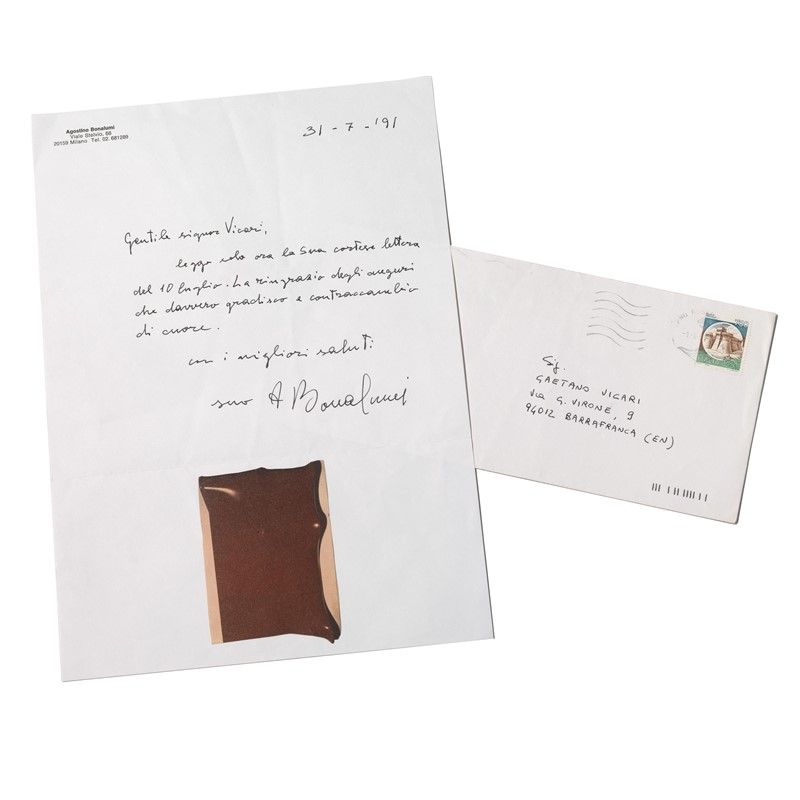 Agostino Bonalumi
Viale Stelvio, 66
20159 Milano Tel. 02. 681289
31 - 7 - '91
Gentile signor Vicari,
leggo solo ora la Sua cortese lettera
del 10 luglio. La ringrazio degli auguri
che davvero gradisco e contraccambio
di cuore.
con i migliori saluti
suo A Bonalumi
Sig.
GAETANO VICARI
Via G. VIRONE, 9
94012 BARRAFRANCA (EN)